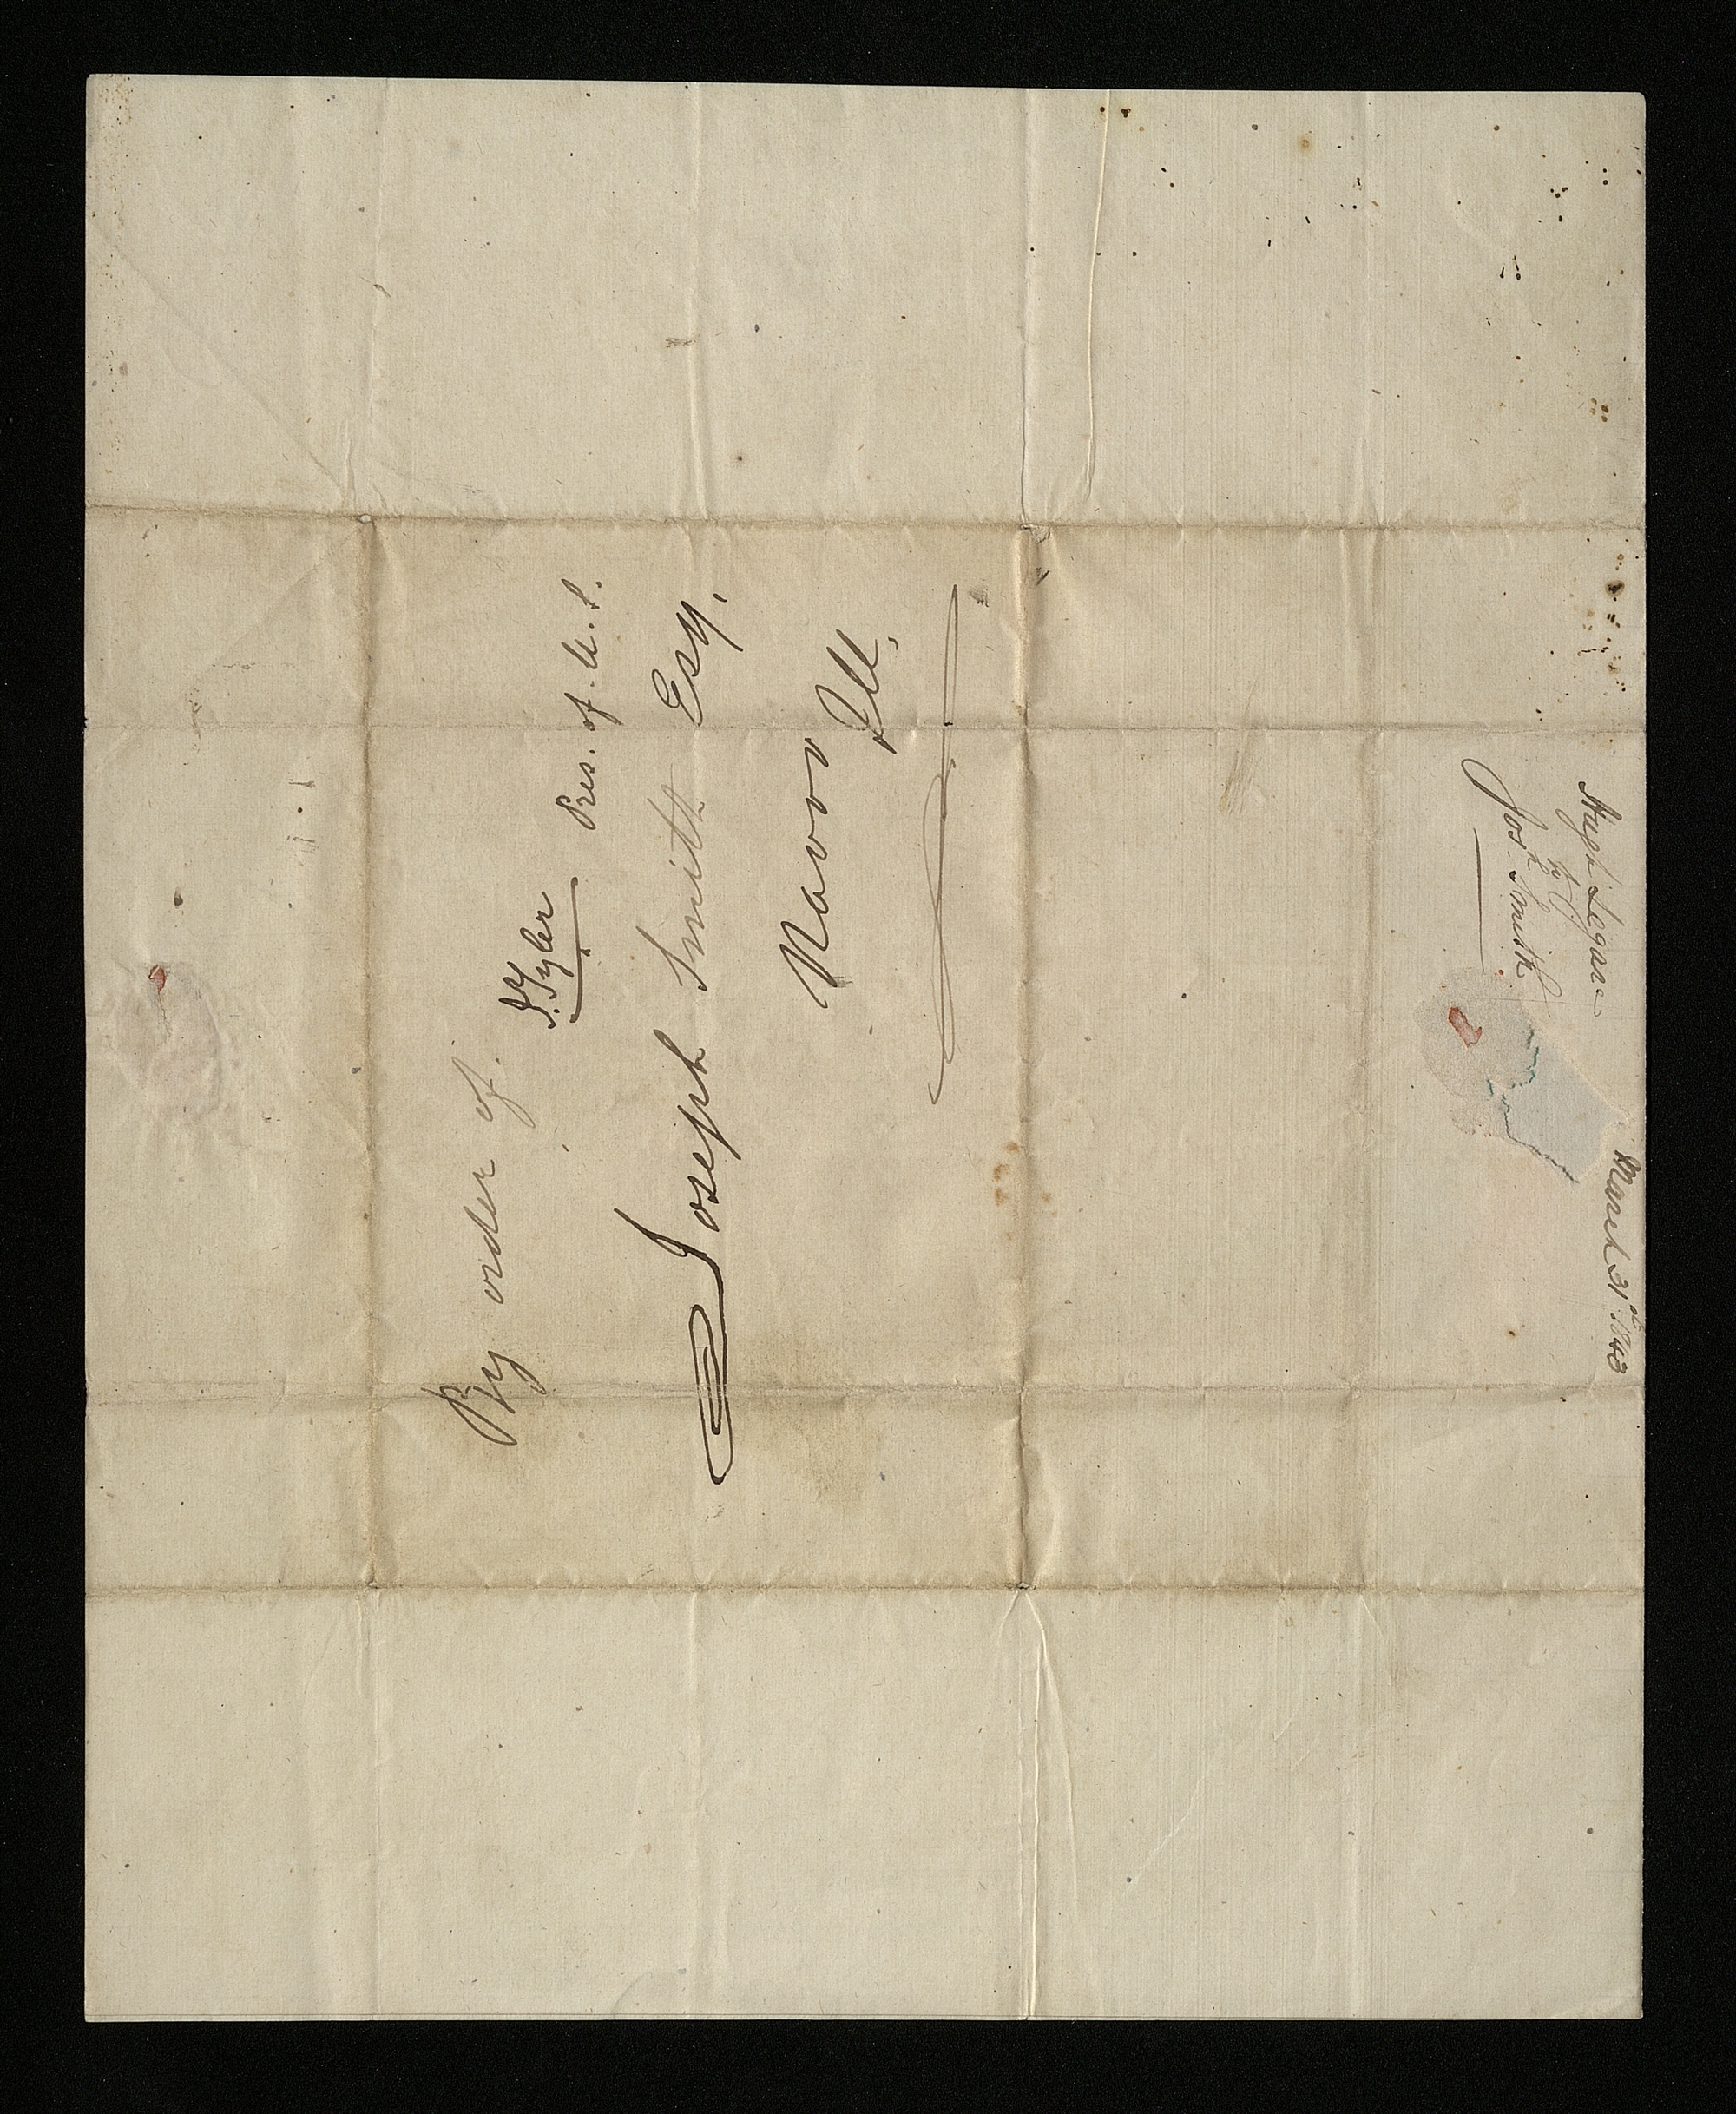 By order of
J. Tyler
Pres. of U. S.
Joseph Smith Esq,
Navoo
Ill.
Hugh Legare
to
Josh. Smith
March 31st. 1843